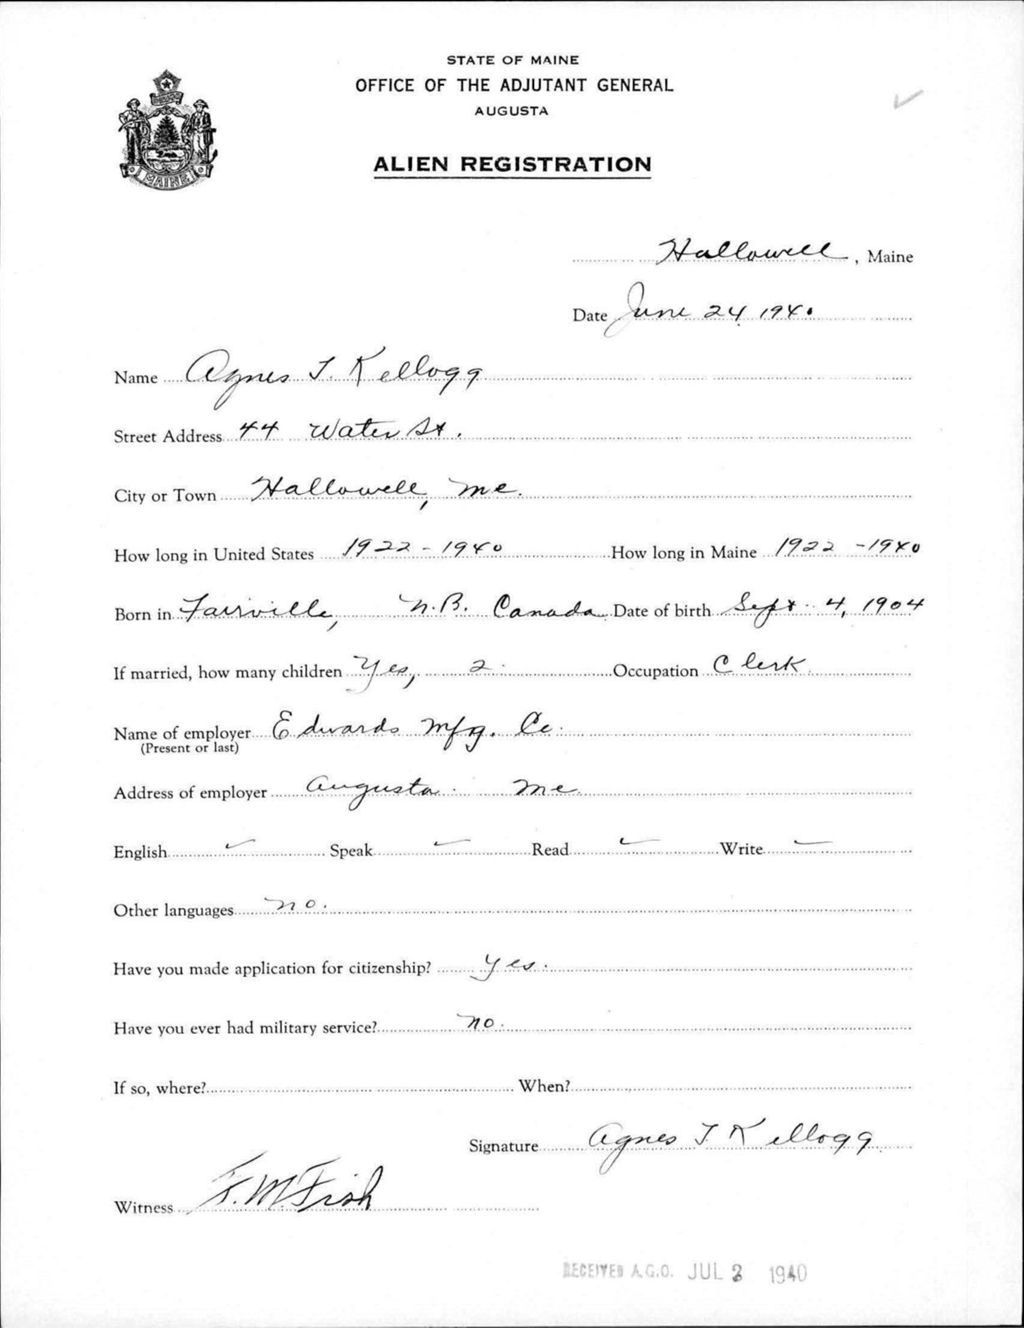 STATE OF MAINE
OFFICE OF THE ADJUTANT GENERAL
AUGUSTA
ALIEN REGISTRATION
MAINE
Hallowell, Maine
Date June 24, 1940
Name Agnes T. Kellogg
Street Address 44 Water St.
City or Town Hallowell, Me.
How long in United States 1922 - 1940 How long in Maine 1922 - 1940
Born in Fairville, N.B. Canada Date of birth Sept. 4, 1904
If married, how many children Yes, 2. Occupation Clerk
Name of employer Edwards Mfg. Co.
(Present or last)
Address of employer Augusta. Me.
English ✓ Speak ✓ Read ✓ Write ✓
Other languages no.
Have you made application for citizenship? Yes.
Have you ever had military service? no.
If so, where? When?
Signature Agnes T Kellogg
Witness F. M. Fish
RECEIVED A.G.O. JUL 2 1940